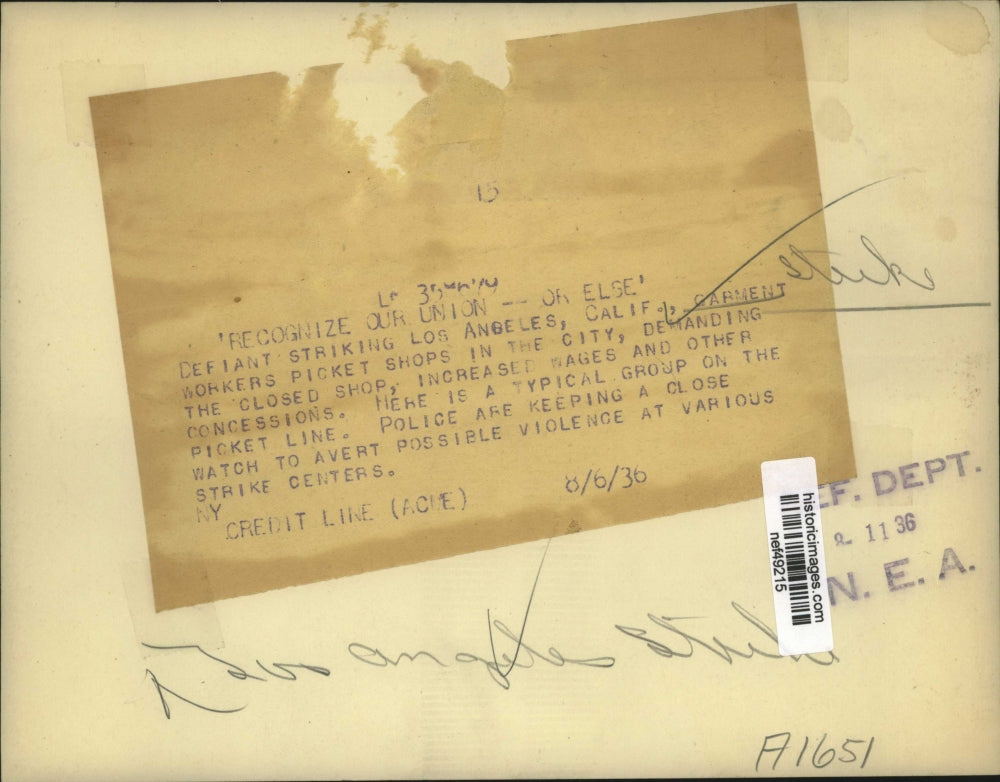 15
'RECOGNIZE OUR UNION -- OR ELSE'
DEFIANT STRIKING LOS ANGELES, CALIF., GARMENT
WORKERS PICKET SHOPS IN THE CITY, DEMANDING
THE CLOSED SHOP, INCREASED WAGES AND OTHER
CONCESSIONS. HERE IS A TYPICAL GROUP ON THE
PICKET LINE. POLICE ARE KEEPING A CLOSE
WATCH TO AVERT POSSIBLE VIOLENCE AT VARIOUS
STRIKE CENTERS.
NY
CREDIT LINE (ACME) 8/6/36
strike
EF. DEPT.
11 36
N. E. A.
historicimages.com
nef49215
Los Angeles Strike
A1651